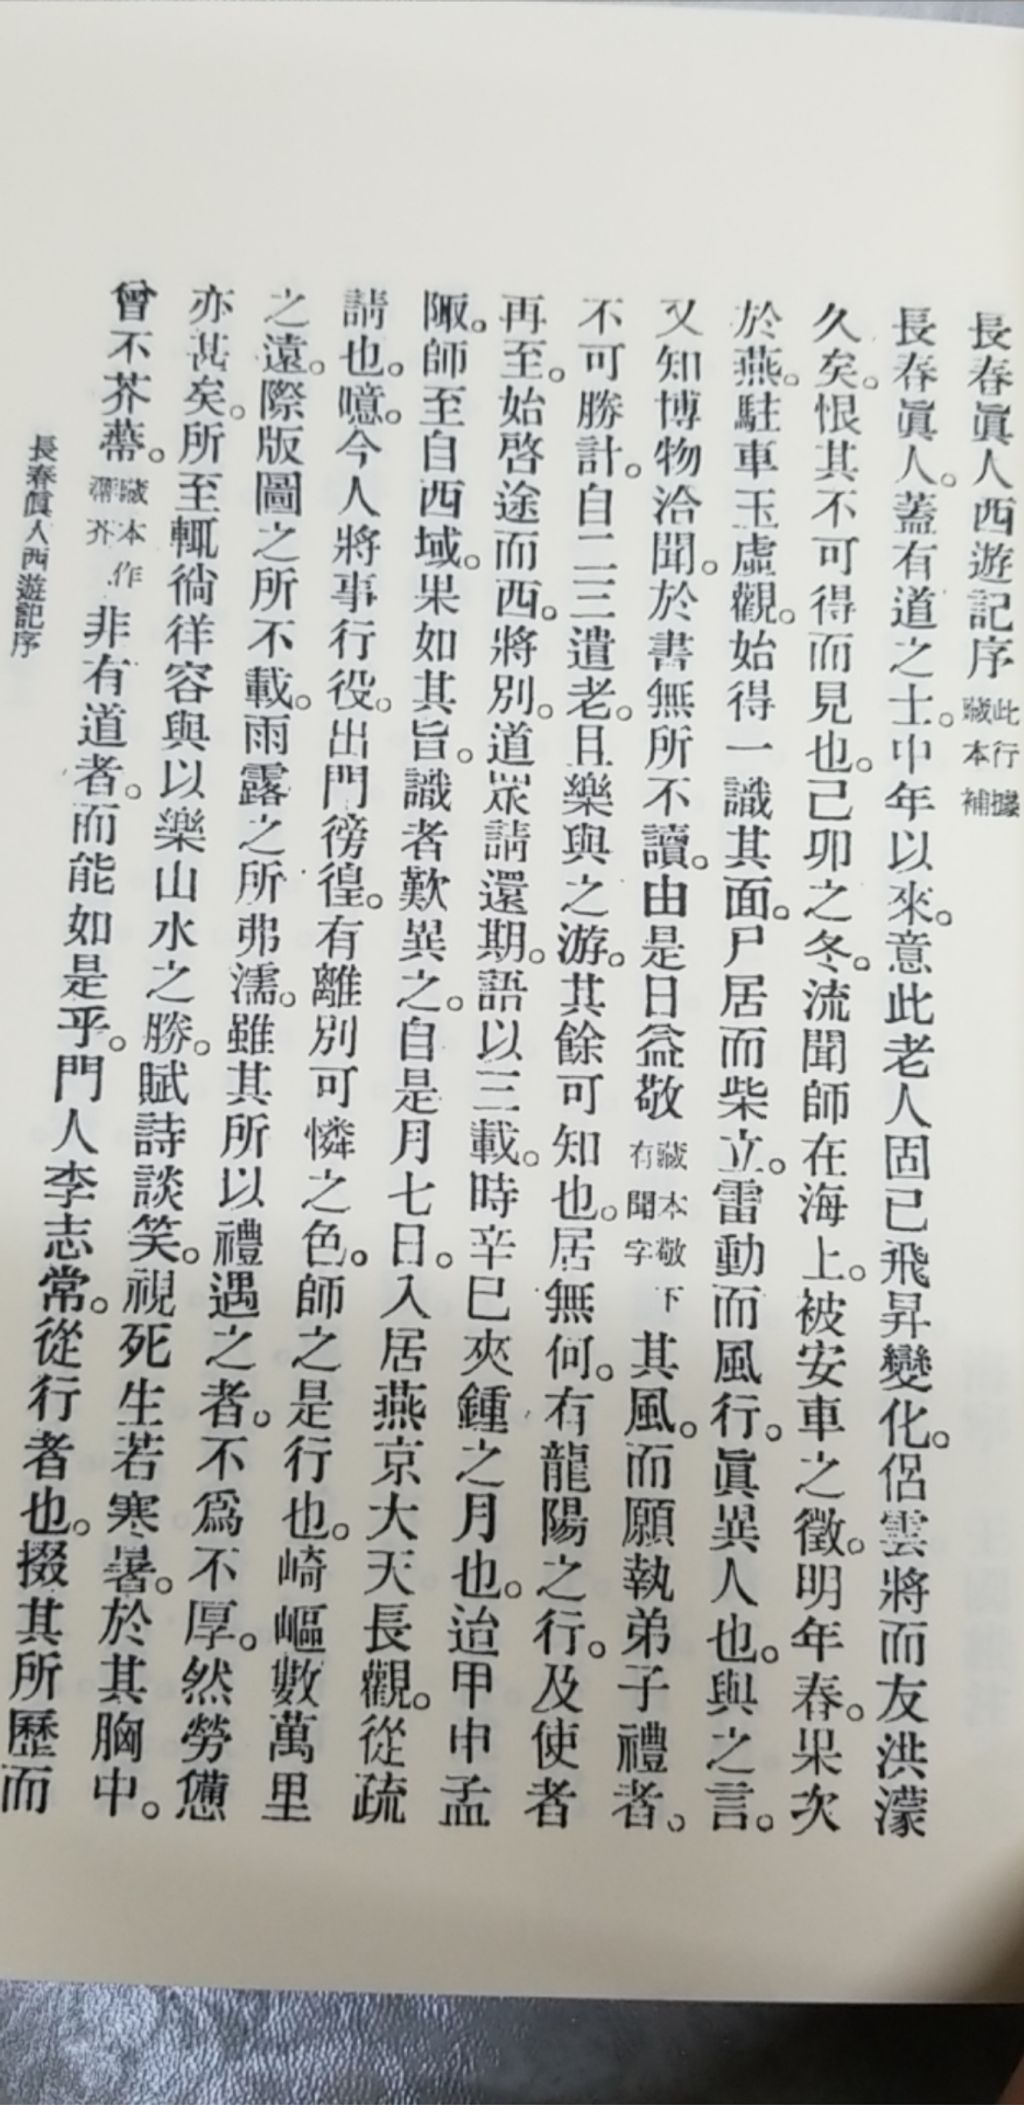 長春眞人西遊記序此行據藏本補
長春眞人。蓋有道之士。中年以來。意此老人固已飛昇變化。侶雲將而友洪濛
久矣。恨其不可得而見也。己卯之冬。流聞師在海上。被安車之徵。明年春。果次
於燕。駐車玉虛觀。始得一識其面。尸居而柴立。雷動而風行。眞異人也。與之言。
又知博物洽聞。於書無所不讀。由是日益敬藏本敬下有聞字其風。而願執弟子禮者。
不可勝計。自二三遺老。且樂與之游。其餘可知也。居無何。有龍陽之行。及使者
再至。始啓途而西。將別。道眾請還期。語以三載。時辛巳夾鍾之月也。迨甲申孟
陬。師至自西域。果如其旨。識者歎異之。自是月七日。入居燕京大天長觀。從疏
請也。噫。今人將事行役。出門徬徨。有離別可憐之色。師之是行也。崎嶇數萬里
之遠。際版圖之所不載。雨露之所弗濡。雖其所以禮遇之者。不爲不厚。然勞憊
亦甚矣。所至輒徜徉容與以樂山水之勝。賦詩談笑。視死生若寒暑。於其胸中。
曾不芥蔕。藏本作滯芥非有道者。而能如是乎。門人李志常。從行者也。掇其所歷而
長春眞人西遊記序